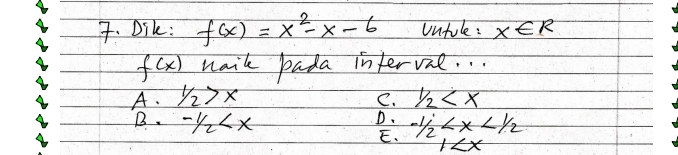 7. Dik: f(x) = x²-x-6 Untuk: x ∈ R
f(x) naik pada interval...
A. ½>x C. ½<x
B. -½<x D. -½<x<½
E. 1<x